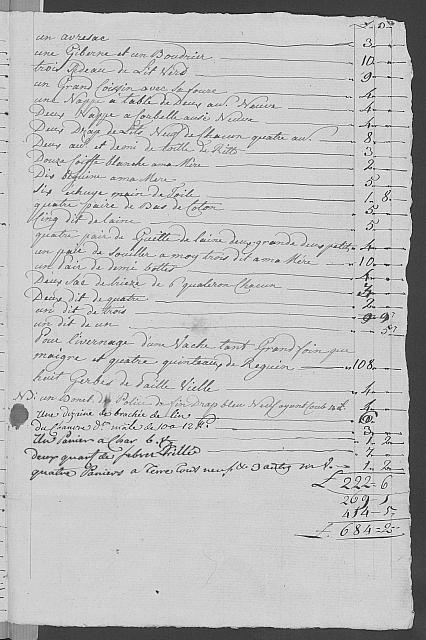 un avresac 3
une Giberne et un Boudrier 10
trois Rideau de Lit Verd 9
un Grand Coissin avec sa foure 4
une Nappe a table de Deux au. Neuve 4
Deux Nappe a Corbelle ausé Neuve 4
Deux Drap de Lits Neuf de Chacun quatre au. 8
Deux au. et demi de toille de Ritte 3
Douze Coiffe blanche a ma Mère 2
Dix beguine a ma Mère 5
six echuye main de Toile 1 8
quatre paire de Bas de Coton 5
Cinq dit de laine 5
quatre pair de Guette de laine deux grande deux petite 4
un paire de soullier a moy trois dit a ma Mère 10
un pair de demi bottes 4
Deux Sac de trieze de quateron Chacun
Deux dit de quatre 2
un dit de trois 9
un dit de un 5
Pour livernage d'une Vache tant Grand foin que
maigre et quatre quinteaux de Reguin 108
huit Gerbes de Paille Vielle 4
un Bonet de Police de fin drap bleu Neuf ayant Couté 4
une dizaine de brachée de lin
du Chanvre de 10 a 12 3
un Paniers a Char 1 2
deux quart de 7
quatre Paniers a Terre tout neuf 1 2
£ 222 6
269 1
£. 684 2